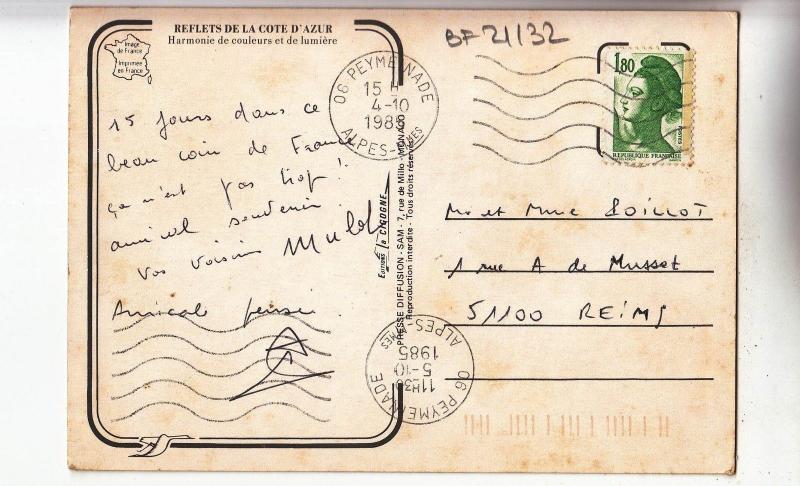 REFLETS DE LA COTE D'AZUR
Harmonie de couleurs et de lumière
Image
de France
Imprimée
en France
15 jours dans ce
beau coin de France
ça n'est pas trop !
amical souvenir.
Vos voisins
Amicale pensée
BF 21/32
06 PEYMEINADE
15 H
4-10
1985
ALPES-MMES
1,80
POSTES
REPUBLIQUE FRANÇAISE
Mr et Mme LOILLOT
1 rue A de Musset
51100 REIMS
Editions la CIGOGNE
PRESSE DIFFUSION - SAM - 7, rue de Millo - MONACO
Reproduction interdite - Tous droits réservés
06 PEYMEINADE
11H30
5-10
1985
ALPES-MMES